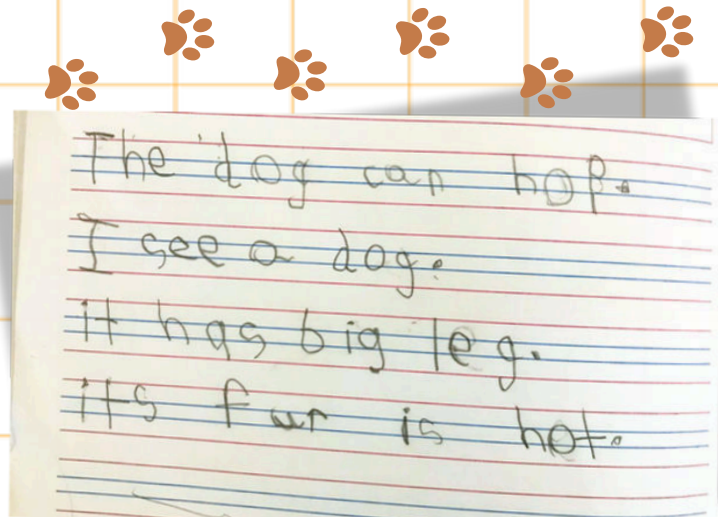 The dog can hop.
I see a dog.
it has big leg.
its fur is hot.